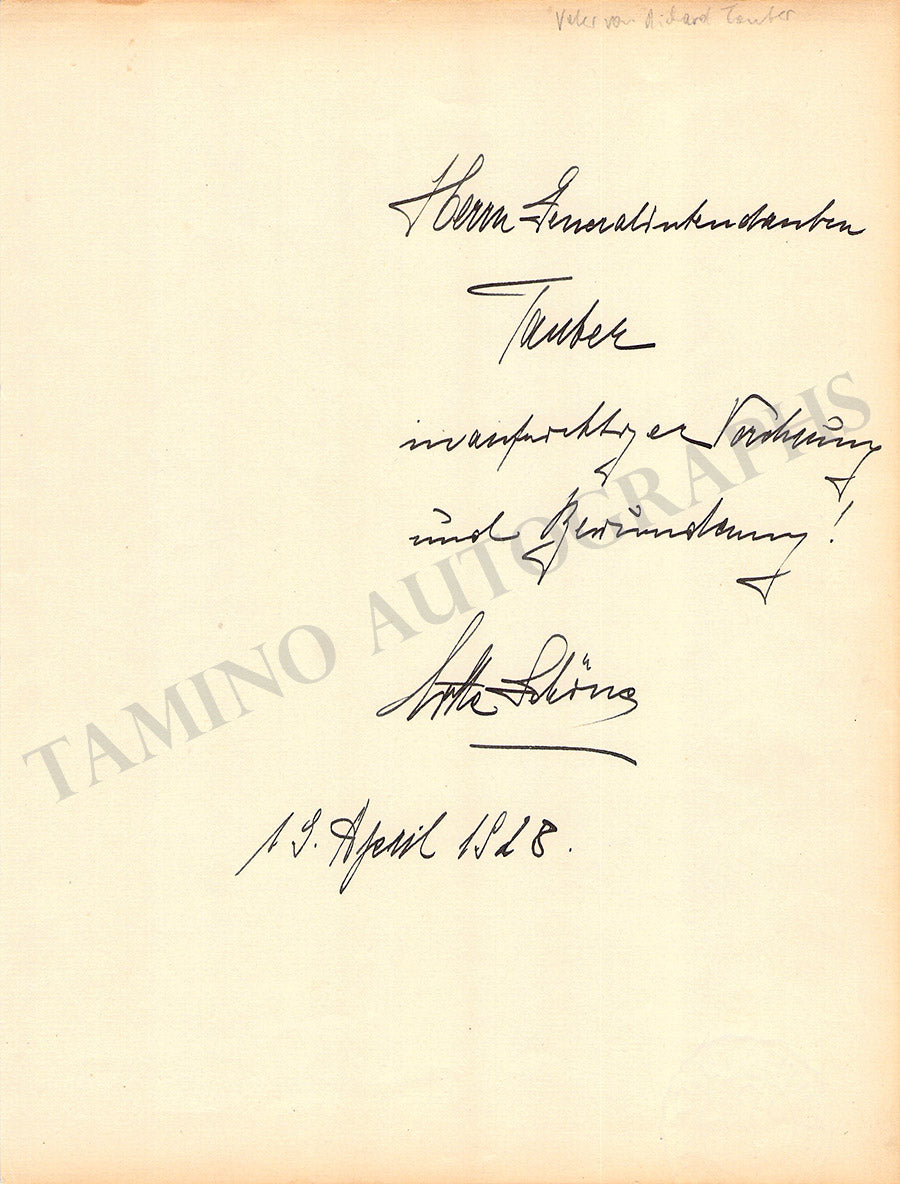 Vater von Richard Tauber
Herrn Generalintendanten
Tauber
in aufrichtiger Verehrung
und Bewunderung!
Lotte Schöne
19. April 1928.
TAMINO AUTOGRAPHS